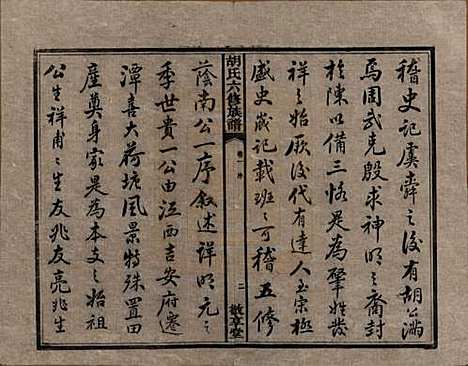 稽史記虞舜之後有胡公滿
焉周武克殷求神明之裔封
於陳以備三恪是為肇姓發
祥之始厥後代有達人玉宗極
盛史成記載班之可稽五修
胡氏六修族譜
卷一 序
二
敦享堂
蔭南公一序叙述詳明元之
季世貴一公由江西吉安府遷
潭善大荷塘風景特殊置田
產奠身家是為本支之始祖
公生祥甫之生友兆友亮兆生